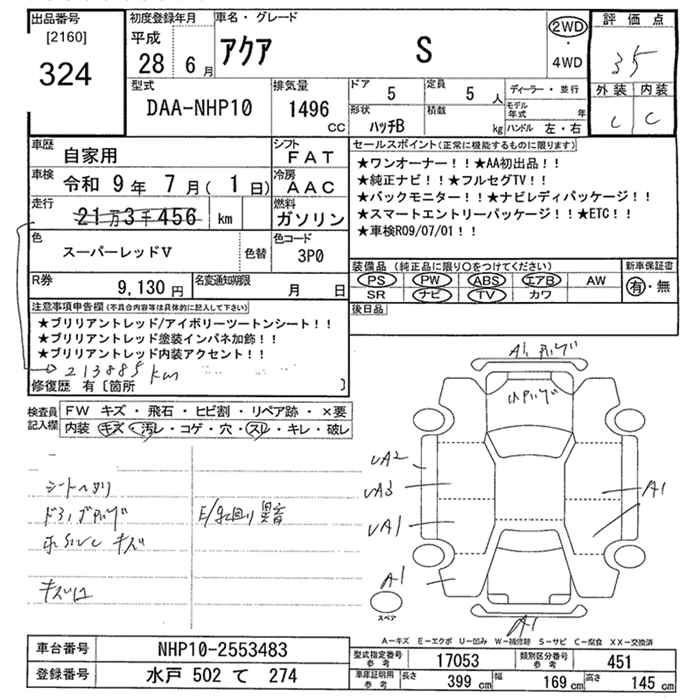 出品番号
[2160]
324
初度登録年月
平成
28年 6月
車名・グレード
アクア S
2WD
・
4WD
評価点
35
外装 内装
C C
型式
DAA-NHP10
排気量
1496 CC
ドア 5
定員 5 人
形状 ハッチB
積載 kg
ディーラー・並行
モデル年式 年
ハンドル 左・右
車歴 自家用
シフト FAT
車検 令和 9年 7月( 1日)
冷房 AAC
走行 21万3千456 km
燃料 ガソリン
色 スーパーレッドV 色替
色コード 3P0
R券 9,130円
名変通知期限 月 日
セールスポイント(正常に機能するものに限ります)
★ワンオーナー!!★AA初出品!!
★純正ナビ!!★フルセグTV!!
★バックモニター!!★ナビレディパッケージ!!
★スマートエントリーパッケージ!!★ETC!!
★車検R09/07/01!!
装備品(純正品に限り○をつけてください)
新車保証書
PS PW ABS エアB AW
有・無
SR ナビ TV カワ
後日品
注意事項申告欄(不具合内容等は具体的に記入して下さい)
★ブリリアントレッド/アイボリーツートンシート!!
★ブリリアントレッド塗装インパネ加飾!!
★ブリリアントレッド内装アクセント!!
213885km
修復歴 有〔箇所 〕
検査員記入欄
FW キズ・飛石・ヒビ割・リペア跡・×要
内装 キズ・汚レ・コゲ・穴・スレ・キレ・破レ
シートヘタリ
E/g回り異音
キズ凹
UA2
UA3
UA1
A1
A1
A1
スペア
A1
A-キズ E-エクボ U-凹ミ W-補修跡 S-サビ C-腐食 XX-交換済
車台番号 NHP10-2553483
登録番号 水戸 502 て 274
型式指定番号 参考 17053
類別区分番号 参考 451
車庫証明用 参考 長さ 399 cm 幅 169 cm 高さ 145 cm